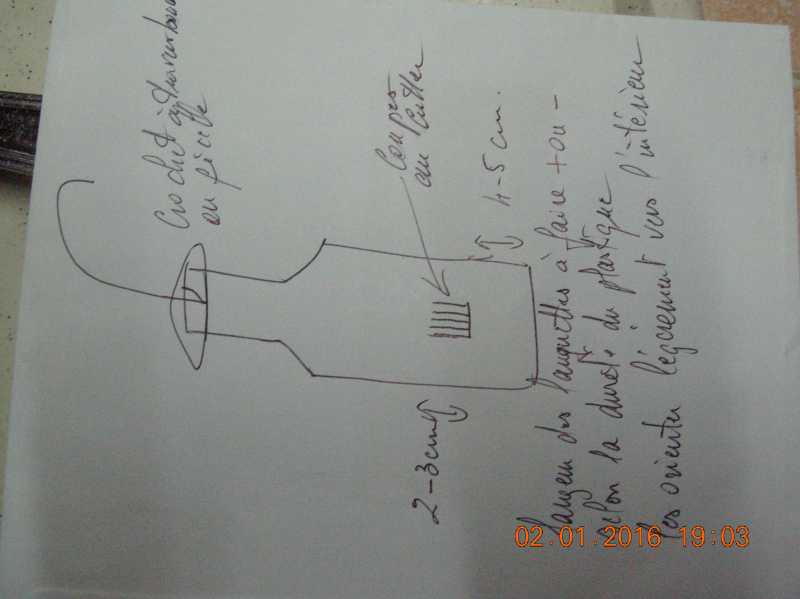 Crochet à
ou ficelle
Coupes
au cutter
4-5 cm.
2-3 cm
largeur des languettes à faire + ou -
selon la dureté du plastique
les orienter légèrement vers l'intérieur
02.01.2016 19:03